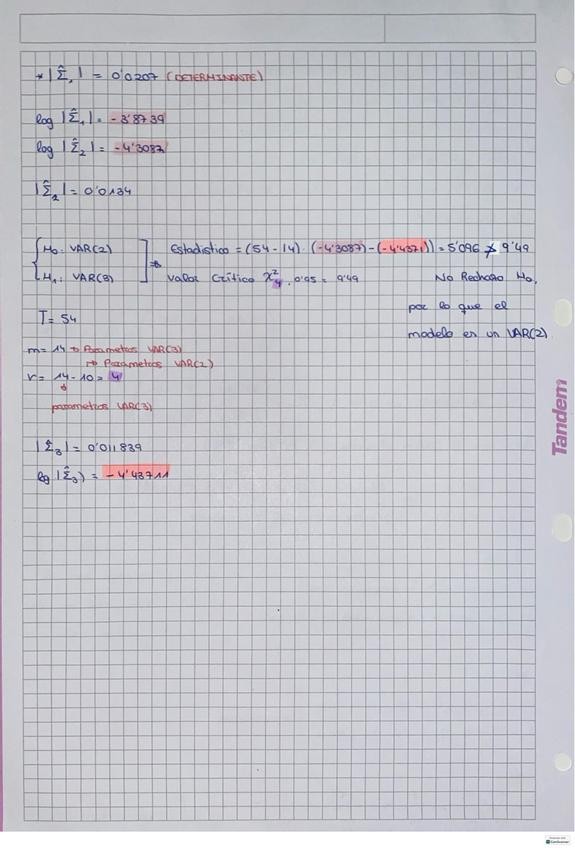 * |Σ̂₁| = 0'0207 (DETERMINANTE)
log |Σ̂₁| = -3'8739
log |Σ̂₂| = -4'3087
|Σ̂₂| = 0'0134
H₀: VAR(2) Estadístico = (54-14)·(-4'3087)-(-4'4371)) = 5'096 ≯ 9'49
H₁: VAR(3) Valor Crítico χ²₄, 0'95 = 9'49 No Rechazo H₀,
por lo que el
T = 54
modelo es un VAR(2)
m = 14 → Parametros VAR(3)
→ Parámetros VAR(2)
r = 14 - 10 = 4
↓
parametros VAR(3)
|Σ̂₃| = 0'011839
log |Σ̂₃) = -4'43711
Tandem
CamScanner